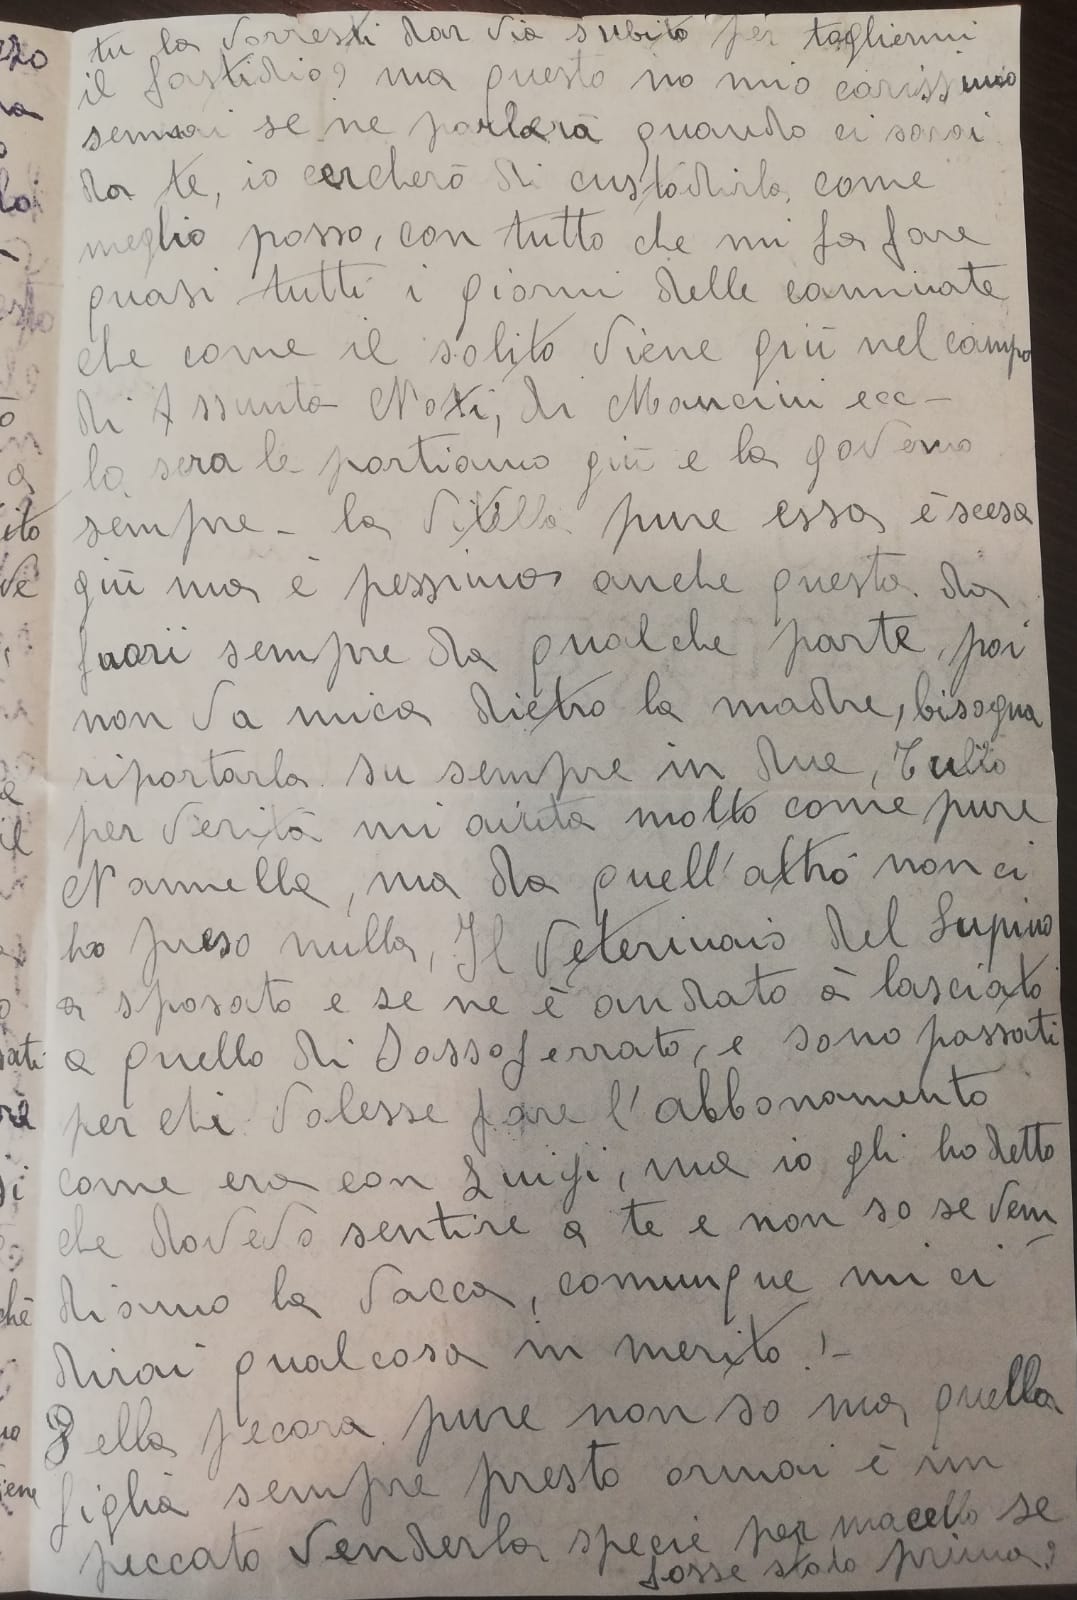 tu la vorresti dar via subito per togliermi
il fastidio? ma questo no mio carissimo
semmai se ne parlerà quando ci sarai
da te, io cercherò di custodirla come
meglio posso, con tutto che mi fa fare
quasi tutti i giorni delle camminate
che come il solito viene giù nel campo
di Assunta Noti, di Mancini ecc-
la sera le portiamo giù e la governo
sempre - la vitella pure essa è scesa
giù ma è pessima anche questa. da
fuori sempre da qualche parte, poi
non va mica dietro la madre, bisogna
riportarla su sempre in due, Tullio
per verità mi aiuta molto come pure
Nannella, ma da quell'altro non ci
ho preso nulla, Il Veterinaio del Lupino
a sposato e se ne è andato à lasciato
a quello di Sassoferrato, e sono passati
per chi volesse fare l'abbonamento
come era con Luigi, ma io gli ho detto
che dovevo sentire a te e non so se ven
diamo la vacca, comunque mi ci
dirai qualcosa in merito! -
Della pecora pure non so ma quella
figlia sempre presto ormai è un
peccato venderla specie per macello se
fosse stato prima?